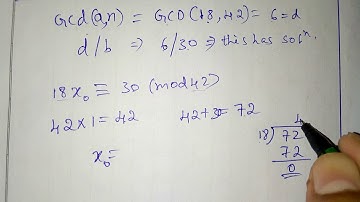 Gcd(a,n) = GCD(18,42) = 6 = d
d/b ⇒ 6/30 ⇒ this has solⁿ.
18x₀ ≡ 30 (mod 42)
42 × 1 = 42 42+30= 72
4
18) 72
72
0
x₀=